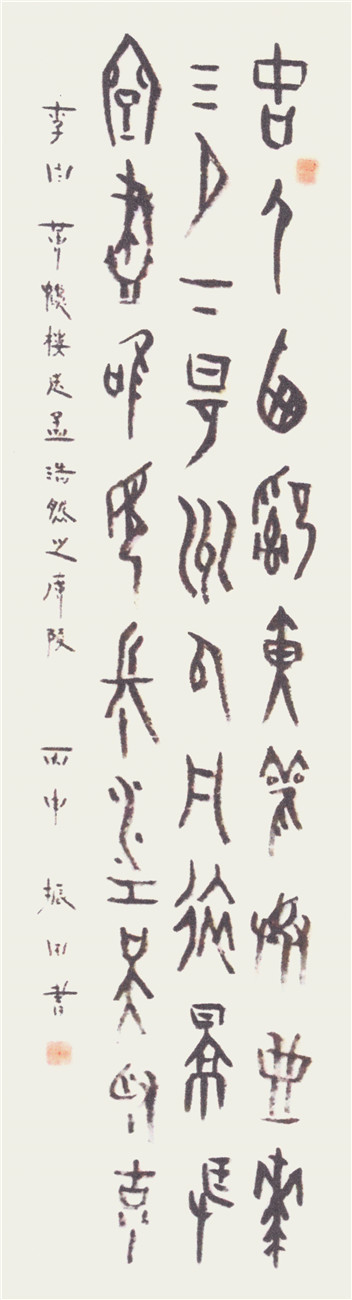 古人西辭黃雚樓垔華
三月下昜州孤凡遠景碧
空盡唯見長江天際流
李白黃鶴樓送孟浩然之廣陵 丙申 振書